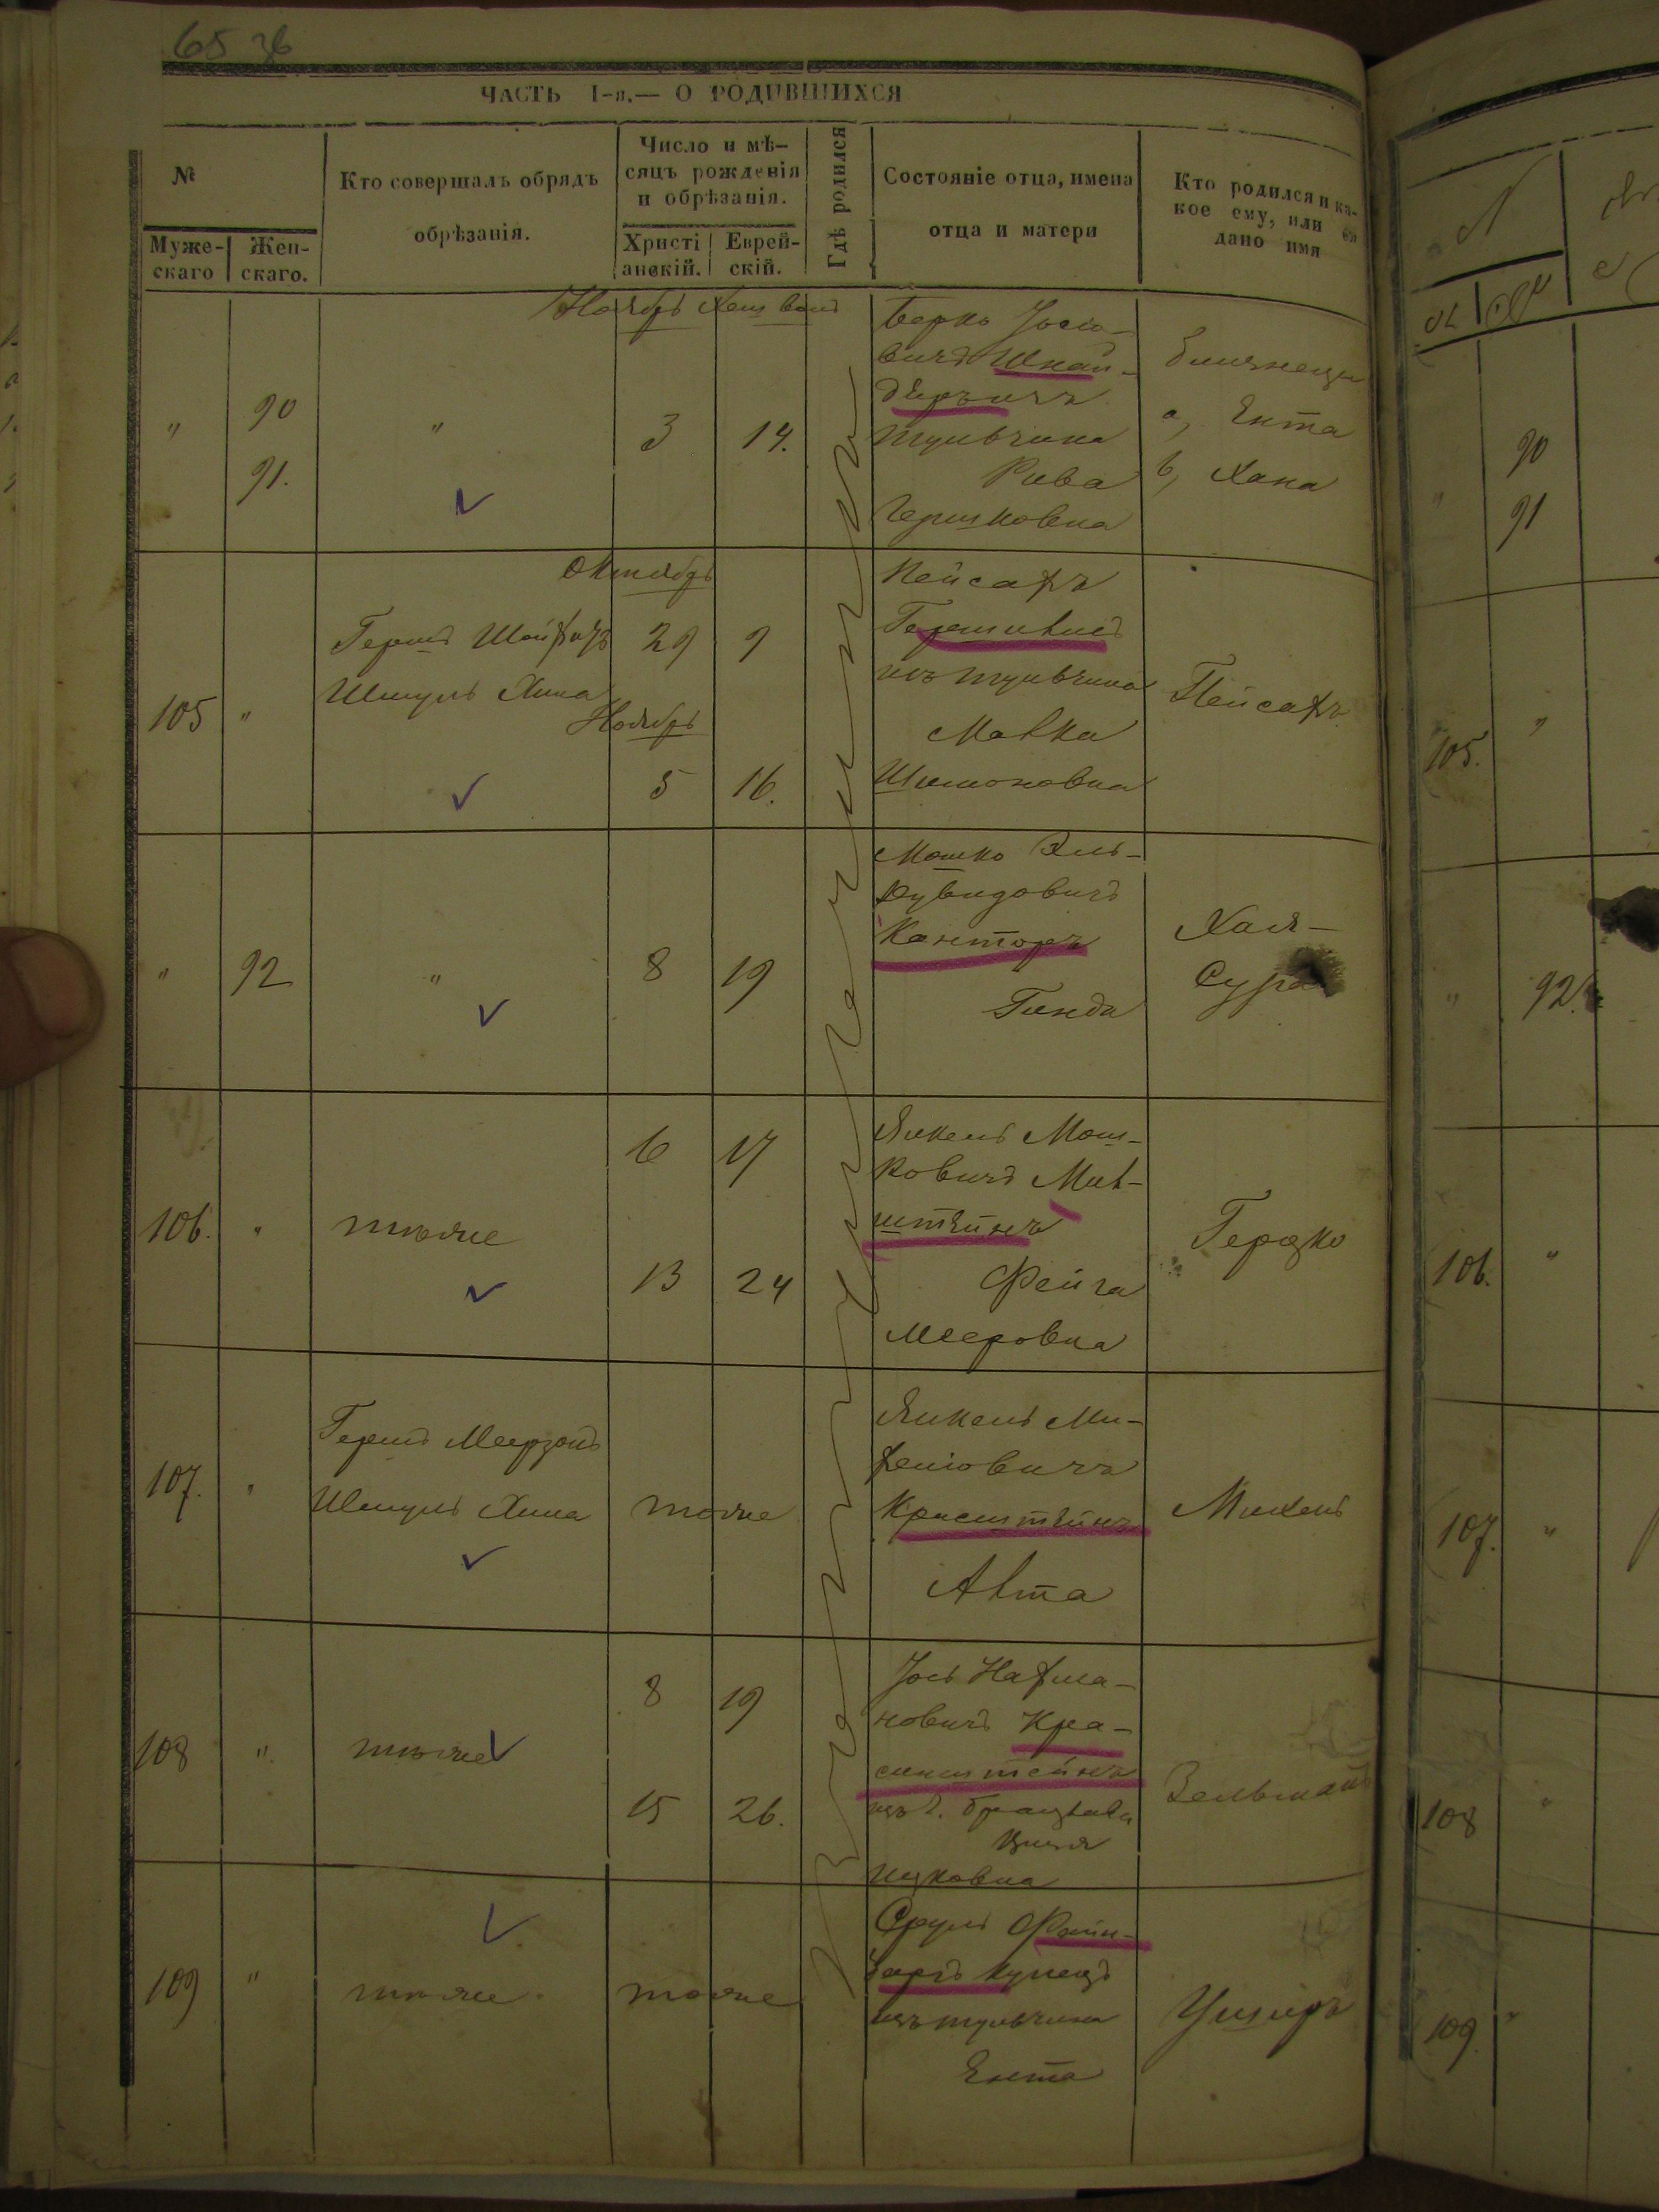 65 зб
ЧАСТЬ I-я.— О РОДИВШИХСЯ
№
Муже-
скаго
Жен-
скаго.
Кто совершалъ обрядъ
обрѣзанія.
Число и мѣ-
сяцъ рожденія
и обрѣзанія.
Христі
анскій.
Еврей-
скій.
Гдѣ родился
Состояніе отца, имена
отца и матери
Кто родился и ка-
кое ему, или ей
дано имя
Ноябрь Хешванъ
" 90 " 3 14.
91.
Берко Іосіо-
вичъ Шнай-
деръ изъ
Тульчина
Рива
Гершковна
близнецы
а, Ента
б, Хана
Октябрь
105 " Гершъ Шойхетъ 29 9
Шмуль Хина
Ноябрь
5 16.
Пейсахъ
изъ Тульчина
Малка
Шимоновна
Пейсахъ
" 92 " 8 19
Мошко Эль-
Канторъ
Гинда
Хая-
Сура
106. " тоже 6 17
13 24
Янкель Мош-
ковичъ Мил-
штейнъ
Фейга
Мееровна
Герцко
107. " Гершъ Меерзонъ
Шмуль Хина тоже
Янкель Ми-
хелiовичъ
Красштейнъ
Алта
Михель
108 " тоже 8 19
15 26.
Іось Нахма-
новичъ Кра-
сенштейнъ
изъ г. Брацлава
Ицковна
Зельманъ
109 " тоже тоже
Сруль Файн-
купецъ
изъ Тульчина
Ента
Ушеръ
90
91
105.
92.
106.
107.
108
109